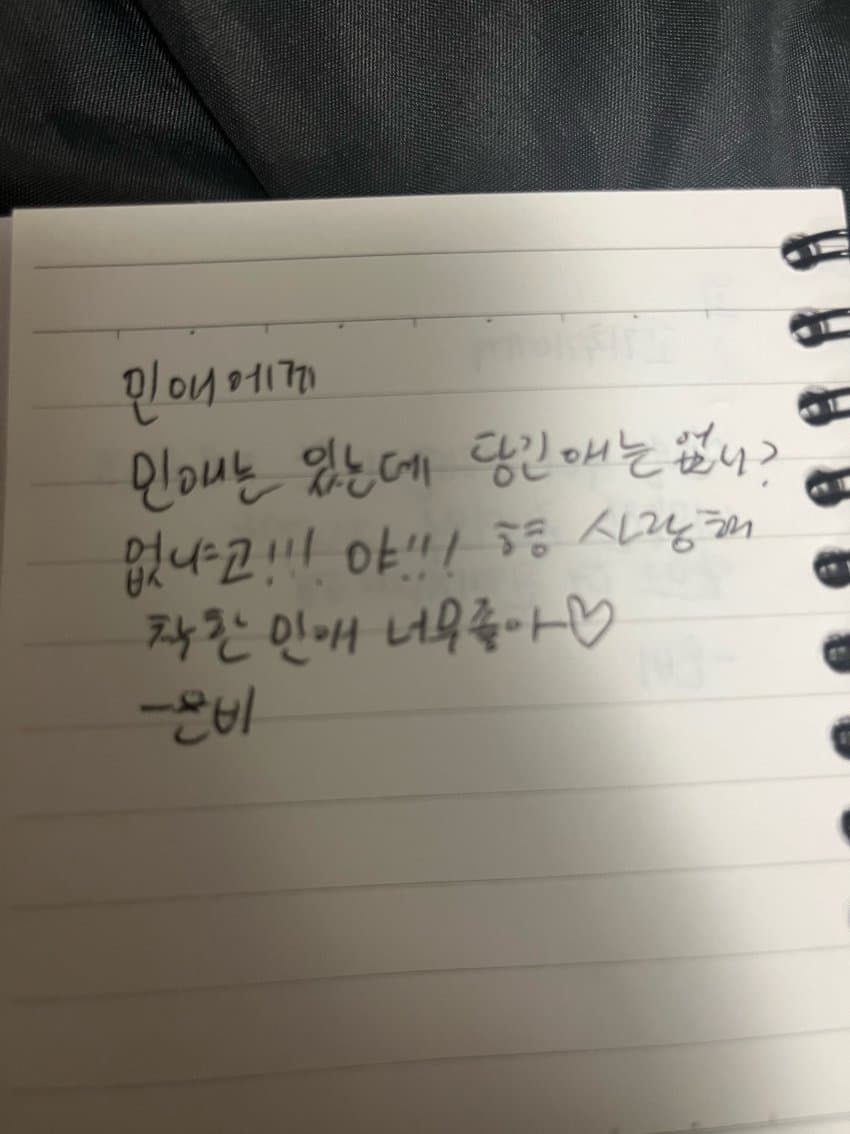 민애에게
민애는 있는데 당긴애는 없나?
없냐고!!! 야!!! 형 사랑해
착한 민애 너무좋아♡
-은비